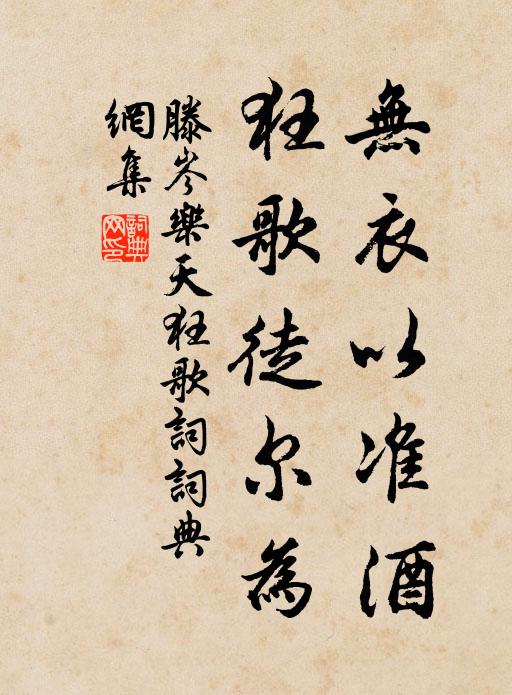 無衣以准酒
狂歌徒尔為
滕岑樂天狂歌詞詞典
網集
詞典网印